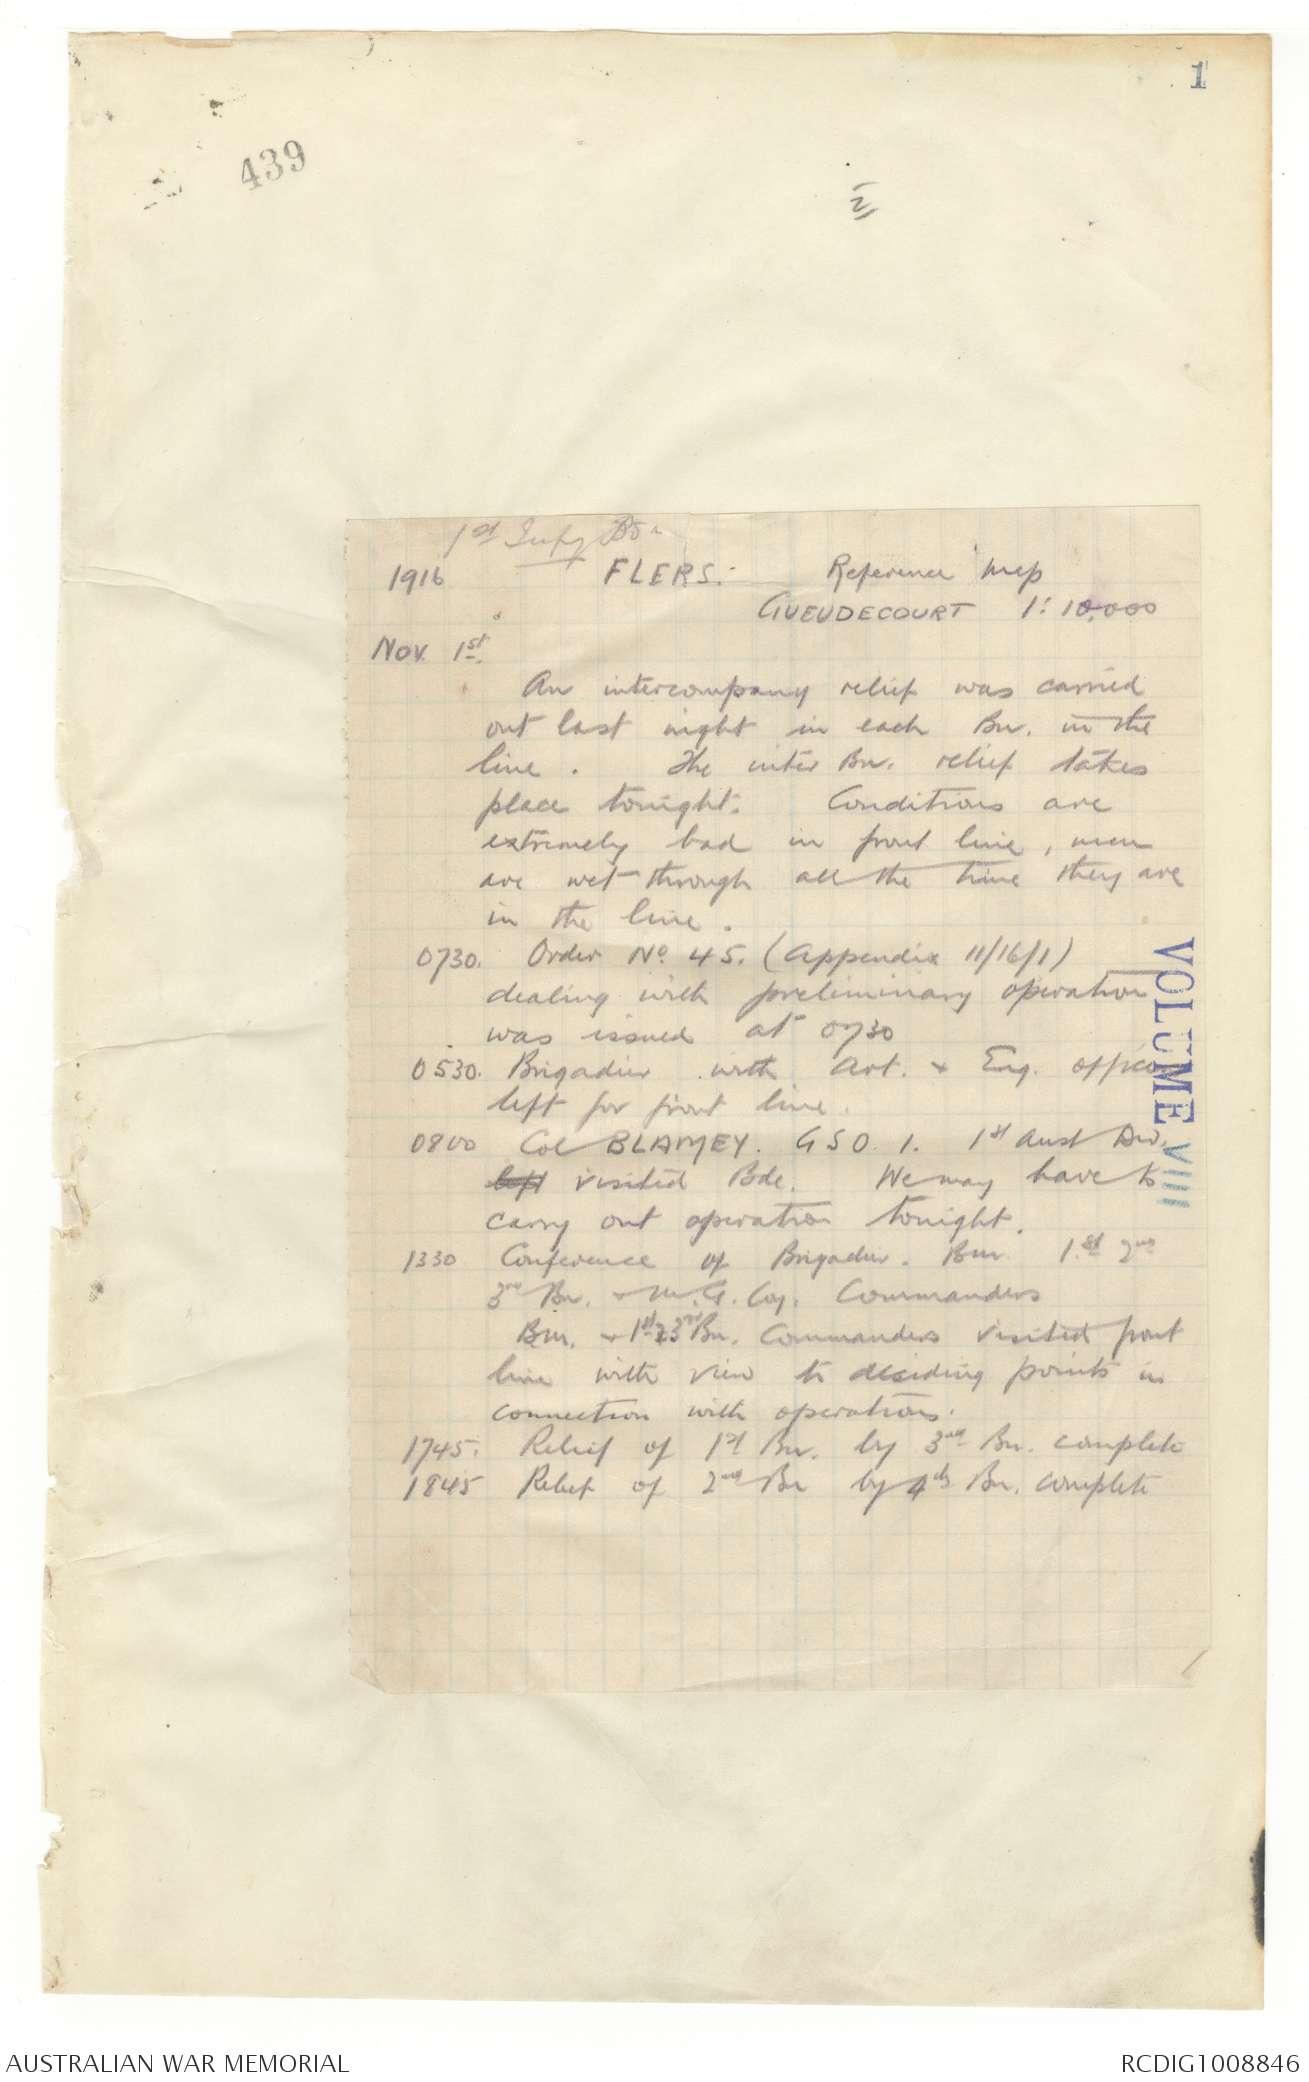 1
439
2
1st Infy Bde
1916 FLERS. Reference Map
GUEUDECOURT 1:10,000
Nov. 1st.
An intercompany relief was carried
out last night in each Bn. in the
line. The inter Bn. relief takes
place tonight. Conditions are
extremely bad in front line, men
are wet through all the time they are
in the line.
0730. Order No. 45. (Appendix 11/16/1)
dealing with preliminary operation
was issued at 0730
0530. Brigadier with Art. & Eng. officers
left for front line.
0800 Col BLAMEY. GSO. 1. 1st Aust Div.
left visited Bde. We may have to
carry out operation tonight.
1330 Conference of Brigadier. Bm. 1st 2nd
3rd Bn. & M.G. Coy. Commanders
Bm. & 1st & 3rd Bn. Commanders visited front
line with view to deciding points in
connection with operations.
1745. Relief of 1st Bn. by 3rd Bn. complete
1845 Relief of 2nd Bn by 4th Bn. complete
VOLUME VIII
AUSTRALIAN WAR MEMORIAL
RCDIG1008846